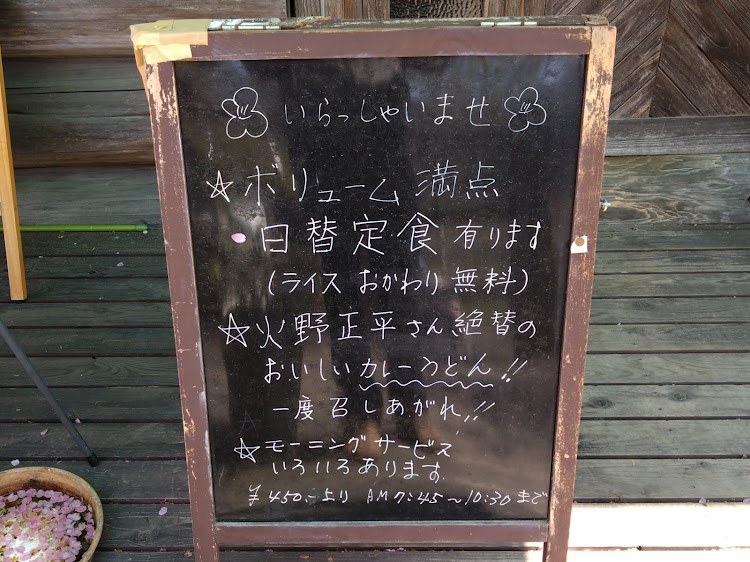 いらっしゃいませ
☆ボリューム満点
・日替定食有ります
(ライスおかわり無料)
☆火野正平さん絶賛の
おいしいカレーうどん!!
一度召しあがれ!!
☆モーニングサービス
いろいろあります
¥450.-より AM7:45〜10:30まで